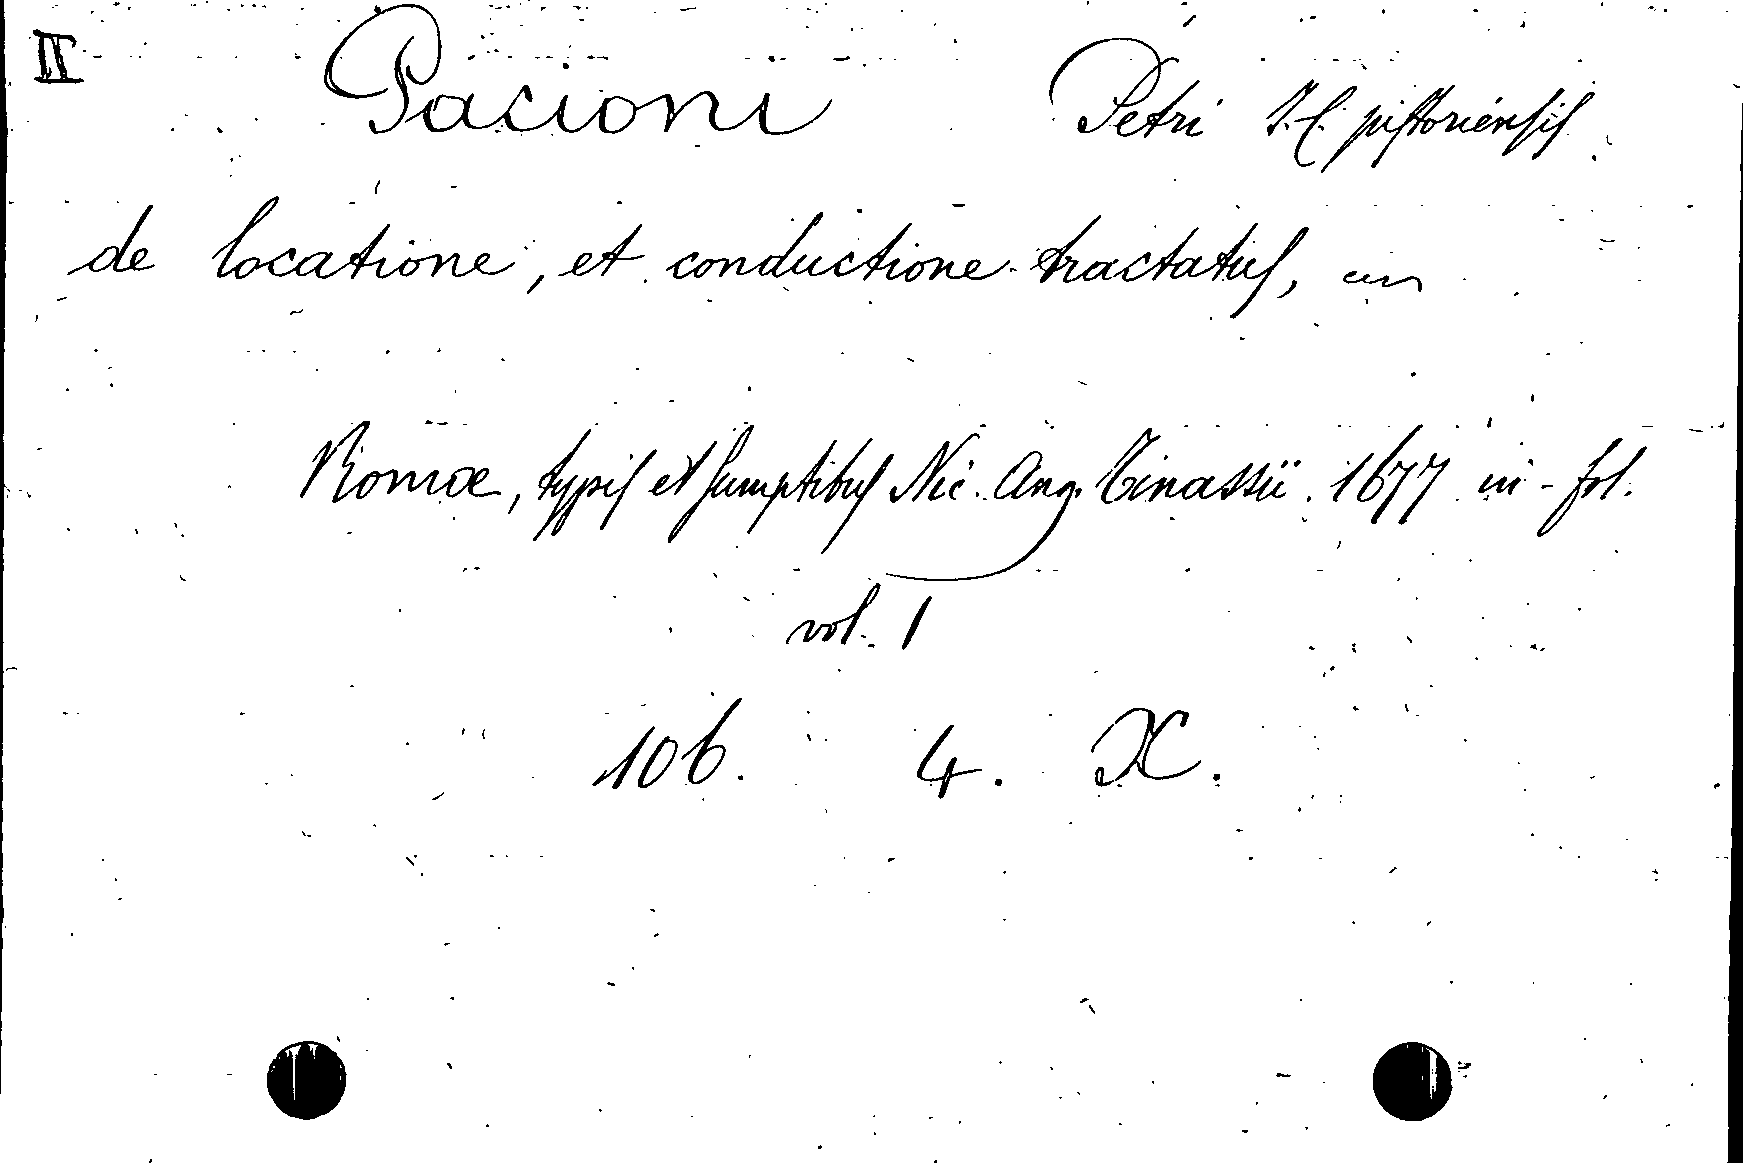 II Pacioni Petri J.C. pistoriensis
de locatione, et conductione tractatus,
Romæ, typis et sumptibus Nic. Ang. Tinassii. 1677 in-fol.
vol. 1
106. 4. X.